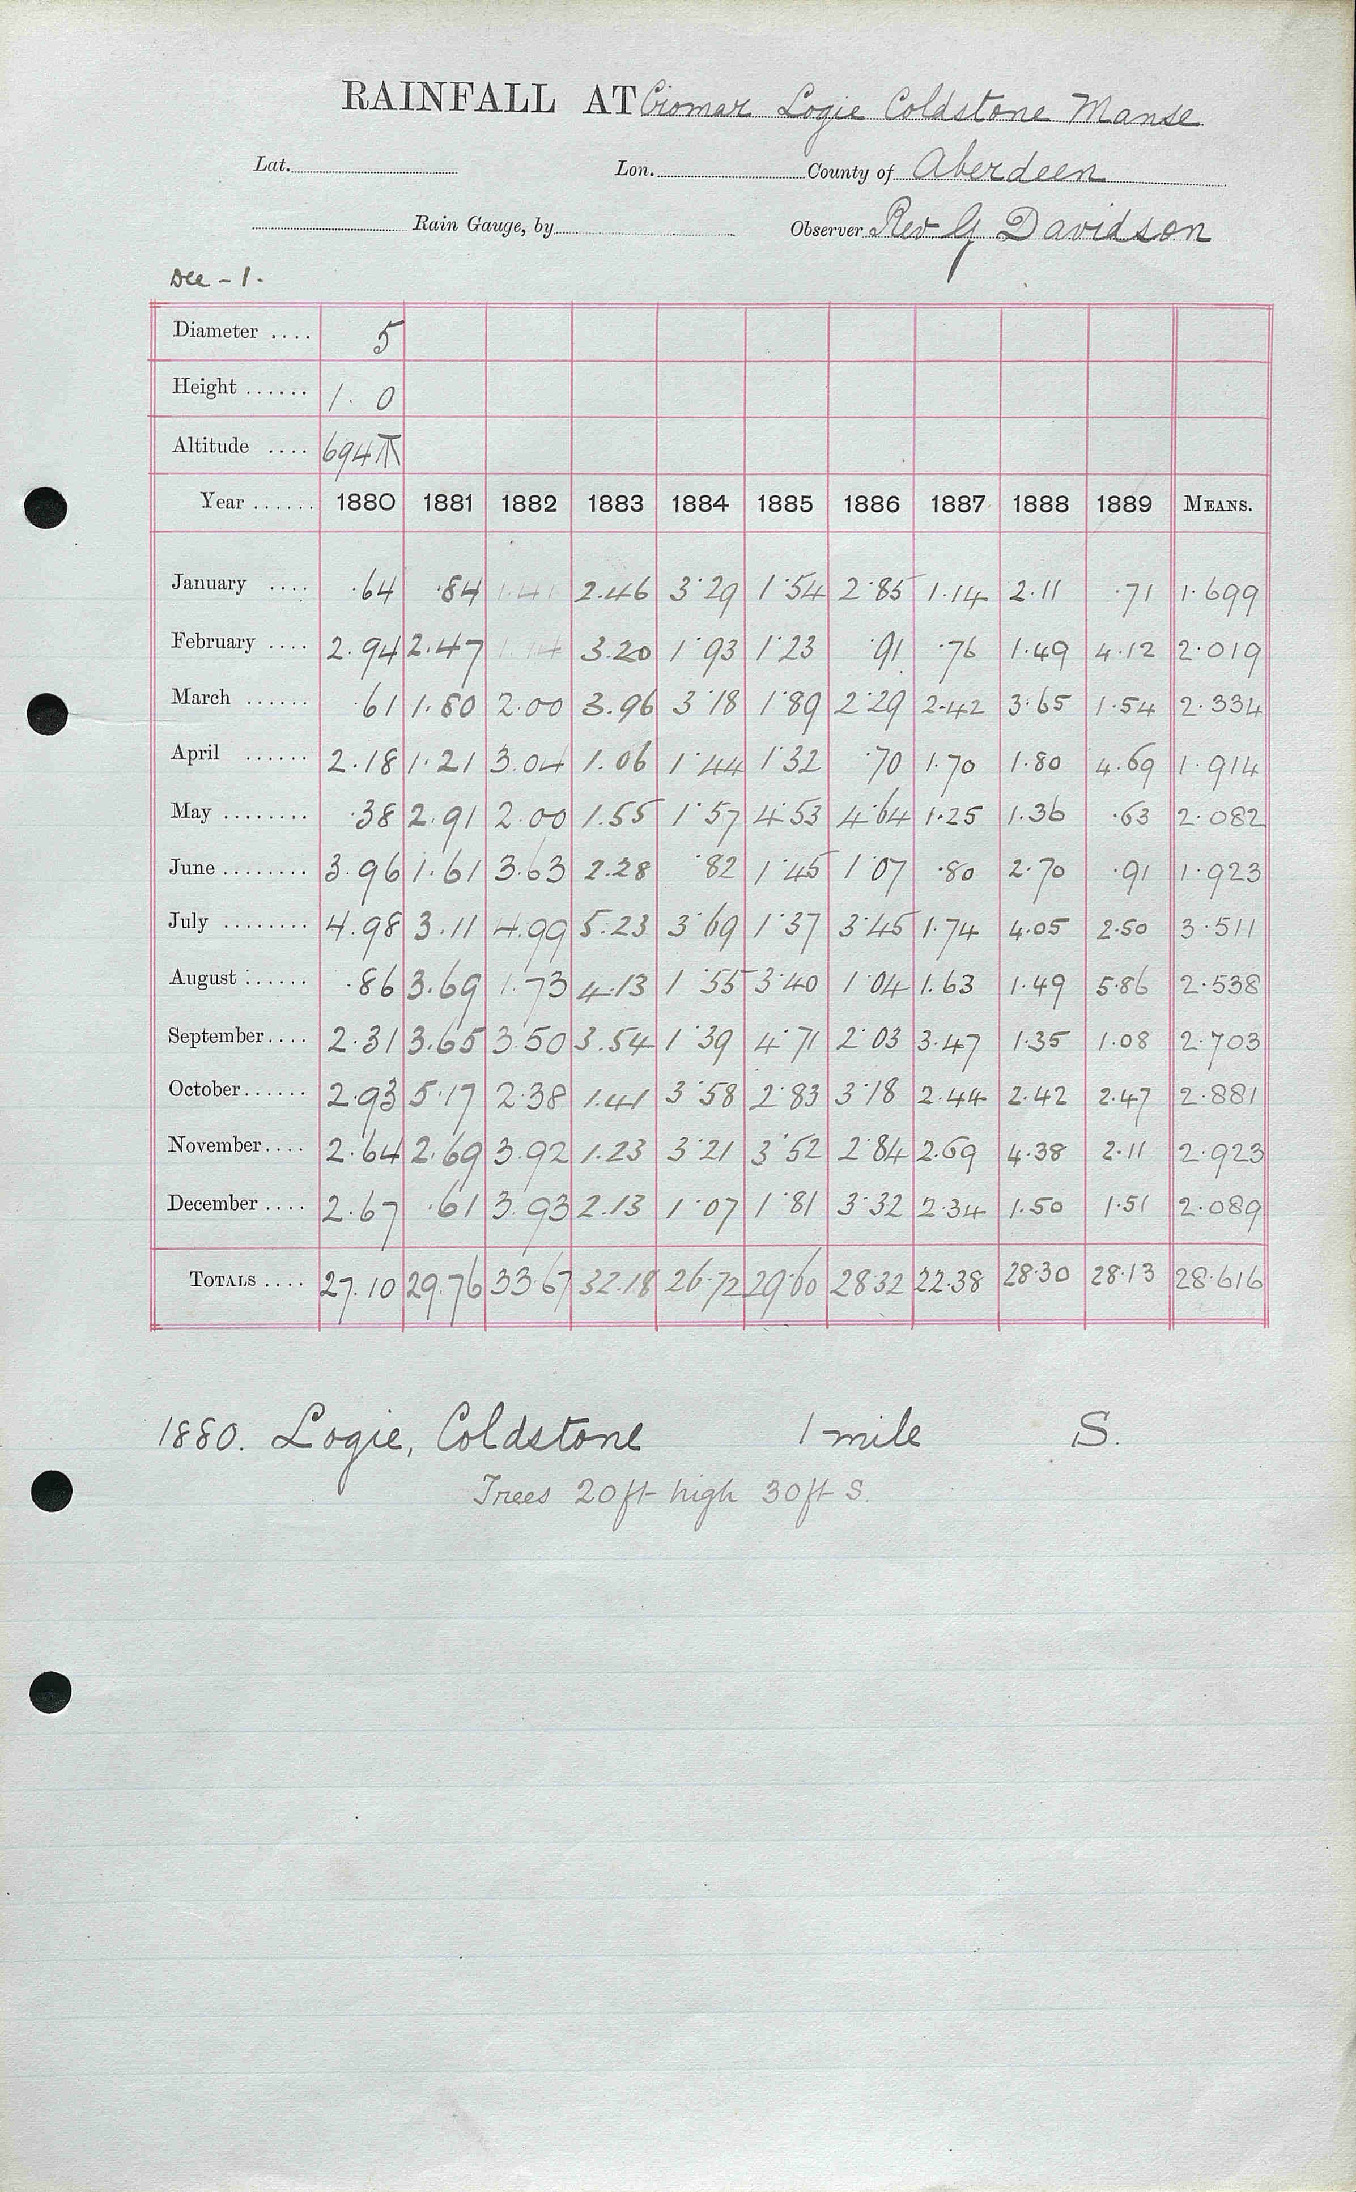 RAINFALL AT Cromar Logie Coldstone Manse
Lat. Lon. County of Aberdeen
Rain Gauge, by Observer Rev G Davidson
Dee - 1.
Diameter .... 5
Height ...... 1. 0
Altitude .... 694 T
Year ...... 1880 1881 1882 1883 1884 1885 1886 1887 1888 1889 MEANS.
January .... .64 .84 1.41 2.46 3.29 1.54 2.85 1.14 2.11 .71 1.699
February .... 2.94 2.47 1.14 3.20 1.93 1.23 .91 .76 1.49 4.12 2.019
March ...... .61 1.80 2.00 3.96 3.18 1.89 2.29 2.42 3.65 1.54 2.334
April ...... 2.18 1.21 3.04 1.06 1.44 1.32 .70 1.70 1.80 4.69 1.914
May ........ .38 2.91 2.00 1.55 1.57 4.53 4.64 1.25 1.36 .63 2.082
June ......... 3.96 1.61 3.63 2.28 .82 1.45 1.07 .80 2.70 .91 1.923
July ........ 4.98 3.11 4.99 5.23 3.69 1.37 3.45 1.74 4.05 2.50 3.511
August ...... .86 3.69 1.73 4.13 1.55 3.40 1.04 1.63 1.49 5.86 2.538
September .... 2.31 3.65 3.50 3.54 1.39 4.71 2.03 3.47 1.35 1.08 2.703
October ...... 2.93 5.17 2.38 1.41 3.58 2.83 3.18 2.44 2.42 2.47 2.881
November .... 2.64 2.69 3.92 1.23 3.21 3.52 2.84 2.69 4.38 2.11 2.923
December .... 2.67 .61 3.93 2.13 1.07 1.81 3.32 2.34 1.50 1.51 2.089
TOTALS .... 27.10 29.76 33.67 32.18 26.72 29.60 28.32 22.38 28.30 28.13 28.616
1880. Logie, Coldstone 1 mile S.
Trees 20ft high 30ft S.